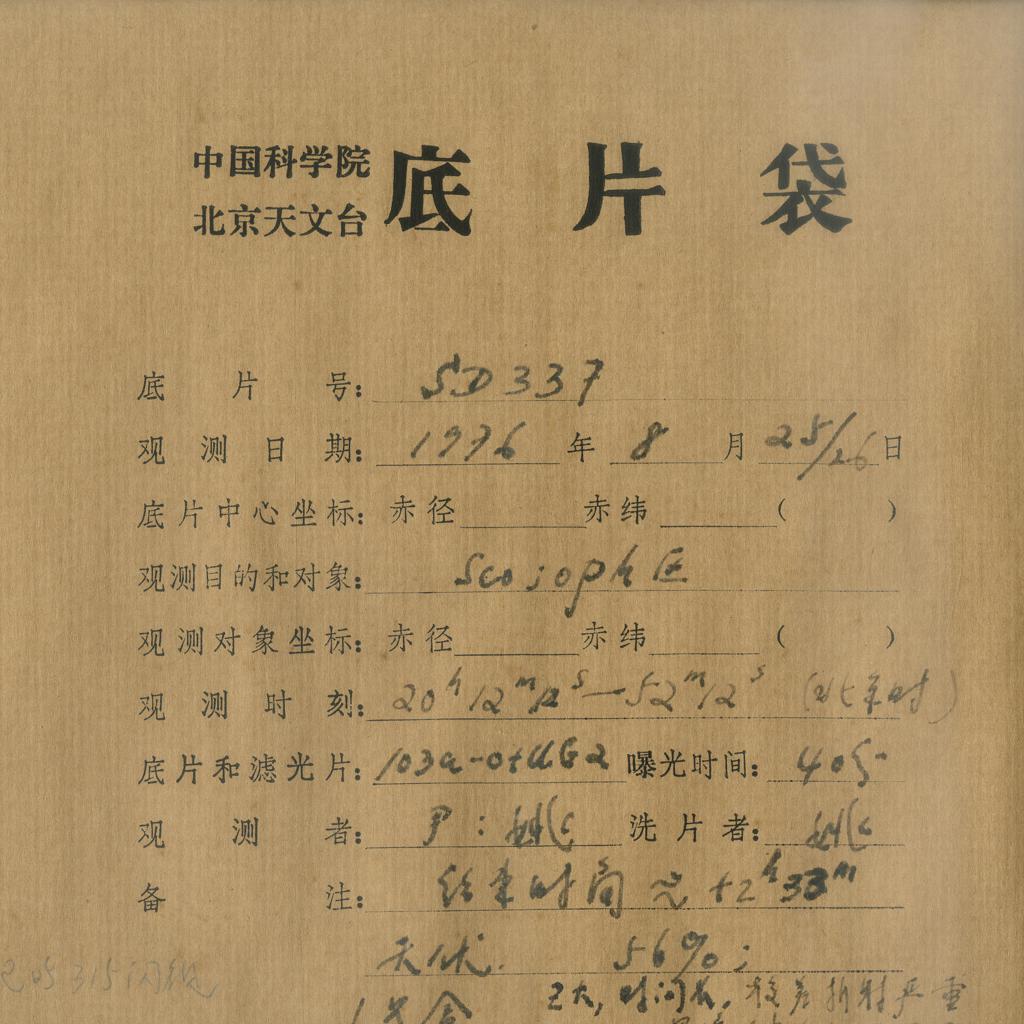 中国科学院
北京天文台
底片袋
底片号: SD337
观测日期: 1976年8月25/26日
底片中心坐标: 赤径 赤纬 ( )
观测目的和对象: Sco; oph 区
观测对象坐标: 赤径 赤纬 ( )
观测时刻: 20h12m12s—52m12s (北京时)
底片和滤光片: 103a-O+UG2 曝光时间: 40分
观测者: 尹: 姚 洗片者: 姚
备注: 结束时角 +2h33m
56%;
Z大, 时间长, 较差折射严重